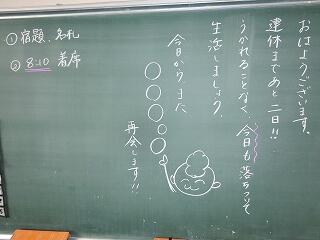 おはようございます。
連休まであと二日!!
うかれることなく、今日も落ちついて
生活しましょう。
今日から、また
〇〇〇〇〇
再会します!!
① 宿題、名札
② 8:10 着席